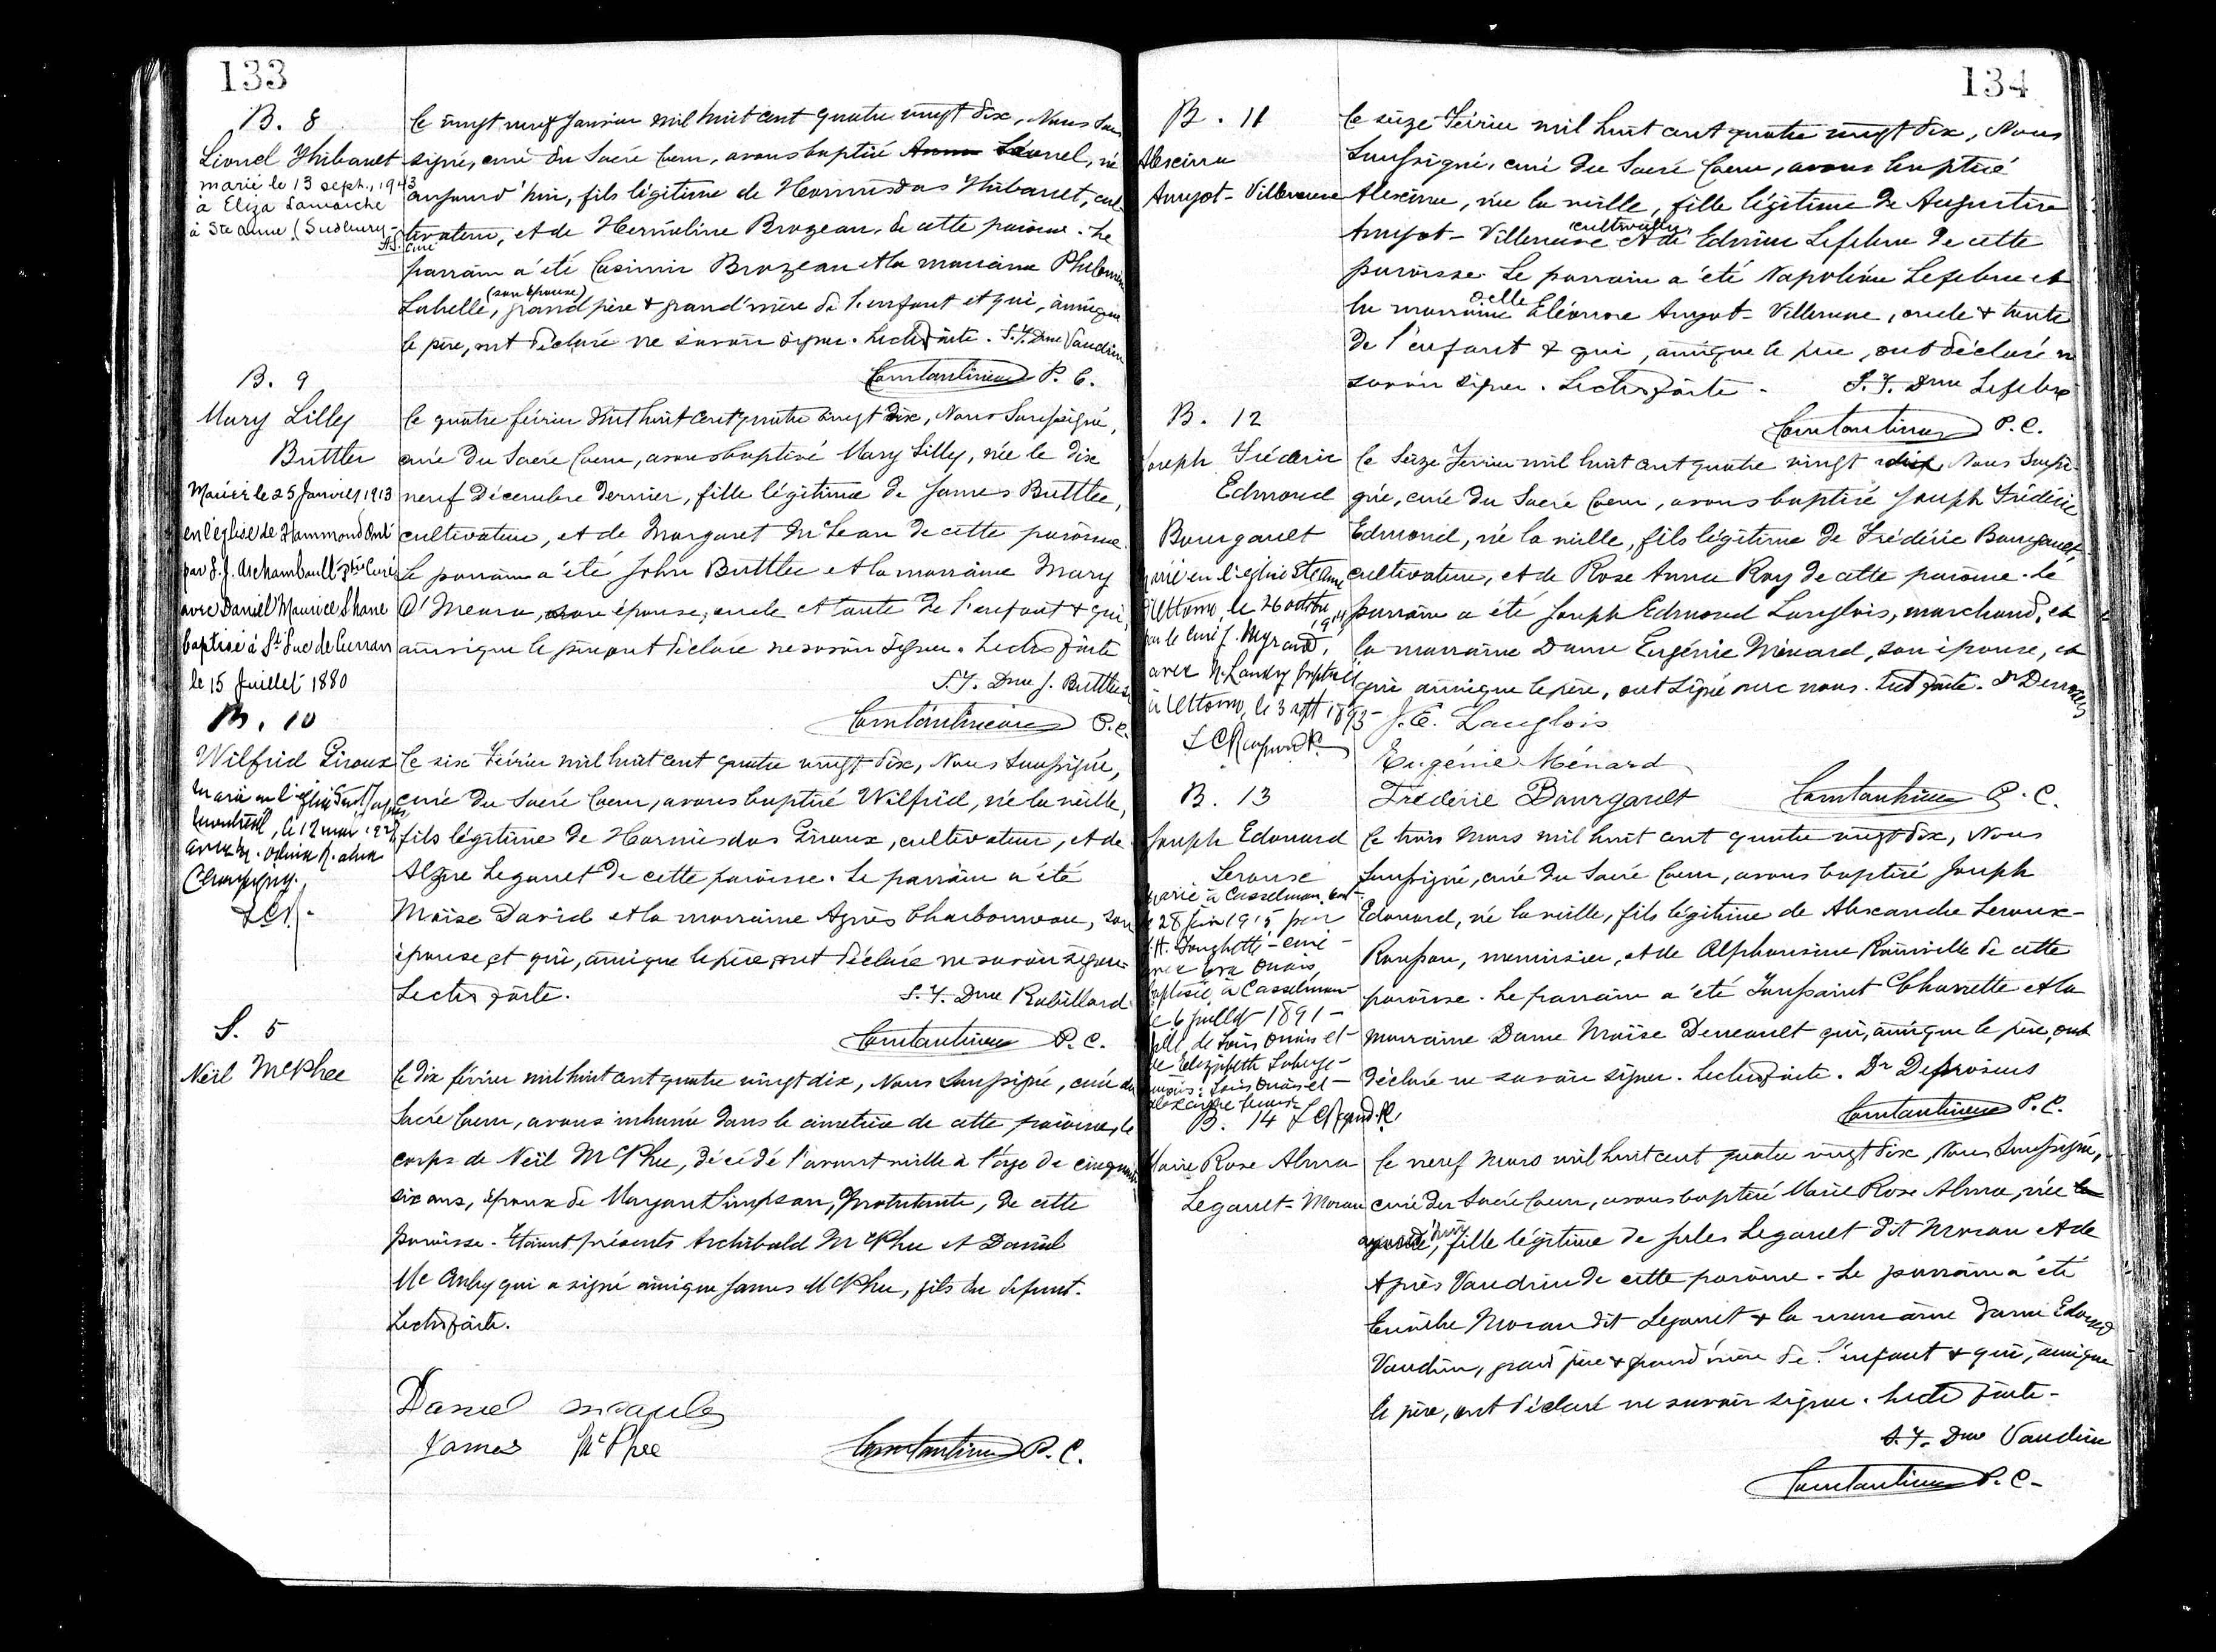 133
B. 8
Lionel Thibault
marié le 13 sept., 1943
à Eliza Lamarche
à Ste Anne (Sudbury)
Le vingt neuf Janvier mil huit cent quatre vingt dix, Nous Sous
signé, curé du Sacré Coeur, avons baptisé Léonel, né
aujourd'hui, fils légitime de Hormisdas Thibault, cul-
tivateur, et de Herméline Brazeau, de cette paroisse. Le
parrain a été Casimir Brazeau et la marraine Philomène
Labelle, (son épouse) grand père & grand'mère de l'enfant et qui, ainsi que
le père, ont déclaré ne savoir signer. Lecture faite. S.F. Dme Vaudrin
Constantineau P. C.
B. 9
Mary Lilly
Buttler
Mariée le 25 Janvier 1913
en l'église de Hammond Ont
par F. J. Archambault ptre Curé
avec Daniel Maurice Shane
baptisé à St Luc de Curran
le 15 Juillet 1880
Le quatre février mil huit cent quatre vingt dix, Nous Soussigné,
curé du Sacré Coeur, avons baptisé Mary Lilly, née le dix
neuf Décembre dernier, fille légitime de James Buttler,
cultivateur, et de Margaret McLean de cette paroisse.
Le parrain a été John Buttler et la marraine Mary
O'Meara, son épouse, oncle et tante de l'enfant & qui,
ainsi que le père, ont déclaré ne savoir signer. Lecture faite
S.F. Dme J. Buttler
Constantineau P.C.
B. 10
Wilfrid Giroux
Marié en l'église Saint Jacques
Montréal, le 12 mai
Champigny.
Le six Février mil huit cent quatre vingt dix, Nous Soussigné,
curé du Sacré Coeur, avons baptisé Wilfrid, né la veille,
fils légitime de Hormisdas Giroux, cultivateur, et de
Alzire Legault de cette paroisse. Le parrain a été
Moïse David et la marraine Agnès Charbonneau, son
épouse, et qui, ainsi que le père, ont déclaré ne savoir signer.
Lecture faite. S.F. Dme Robillard
Constantineau P.C.
S. 5
Neil McPhee
Le dix février mil huit cent quatre vingt dix, Nous Soussigné, curé du
Sacré Coeur, avons inhumé dans le cimetière de cette paroisse, le
corps de Neil McPhee, décédé l'avant veille à l'âge de cinquante
six ans, époux de Margaret Simpson, Protestante, de cette
paroisse. Etaient présents Archibald McPhee et Daniel
McAuley qui a signé ainsi que James McPhee, fils du défunt.
Lecture faite.
Daniel McCauley
James McPhee Constantineau P.C.
134
B. 11
Alexina
Amyot-Villeneuve
Le seize Février mil huit cent quatre vingt dix, Nous
Soussigné, curé du Sacré Coeur, avons baptisé
Alexina, née la veille, fille légitime de Augustin
Amyot-Villeneuve cultivateur, et de Edwina Lefebvre de cette
paroisse. Le parrain a été Napoléon Lefebvre et
la marraine delle Eléonore Amyot-Villeneuve, oncle & tante
de l'enfant & qui, ainsi que le père, ont déclaré ne
savoir signer. Lecture faite. S.F. Dme Lefebvre
Constantineau P.C.
B. 12
Joseph Fréderic
Edmond
Bourgault
Marié en l'église Ste Anne
d'Ottawa, le 26 octobre 1914
par le curé J. Myrand,
avec M. Landry baptisée
à Ottawa, le 3 sept 1893
Le Seize Février mil huit cent quatre vingt dix, Nous Soussi-
gné, curé du Sacré Coeur, avons baptisé Joseph Frédéric
Edmond, né la veille, fils légitime de Frédéric Bourgault,
cultivateur, et de Rose Anna Roy de cette paroisse. Le
parrain a été Joseph Edmond Langlois, marchand, et
la marraine Dame Eugénie Ménard, son épouse, et
qui ainsi que le père, ont signé avec nous. Lect. faite. Dr Desrosiers
J. E. Langlois
Eugénie Ménard
Fréderic Bourgault Constantineau P.C.
B. 13
Joseph Edouard
Leroux
Marié à Casselman, Ont
le 28 juin 1915 par
H. Touchette - curé
baptisée à Casselman
le 6 juillet 1891 -
fille de Louis Ouais et
de Elizabeth Laberge -
témoins: Louis Ouais et -
Alexandre Leroux
Le trois Mars mil huit cent quatre vingt dix, Nous
Soussigné, curé du Sacré Coeur, avons baptisé Joseph
Edouard, né la veille, fils légitime de Alexandre Leroux-
Rousson, menuisier, et de Alphonsine Rainville de cette
paroisse. Le parrain a été Toussaint Charette et la
marraine Dame Moïse Deneault qui, ainsi que le père, ont
déclaré ne savoir signer. Lecture faite. Dr Desrosiers
Constantineau P.C.
B. 14
Marie Rose Alma
Legault-Moran
Le neuf Mars mil huit cent quatre vingt dix, Nous Soussigné,
curé du Sacré Coeur, avons baptisé Marie Rose Alma, née
aujourd'hui, fille légitime de Jules Legault dit Moran et de
Agnès Vaudrin de cette paroisse. Le parrain a été
Eusèbe Moran dit Legault & la marraine Dame Edouard
Vaudrin, grand père & grand'mère de l'enfant & qui, ainsi que
le père, ont déclaré ne savoir signer. Lecture faite.
S.F. Dme Vaudrin
Constantineau P.C.